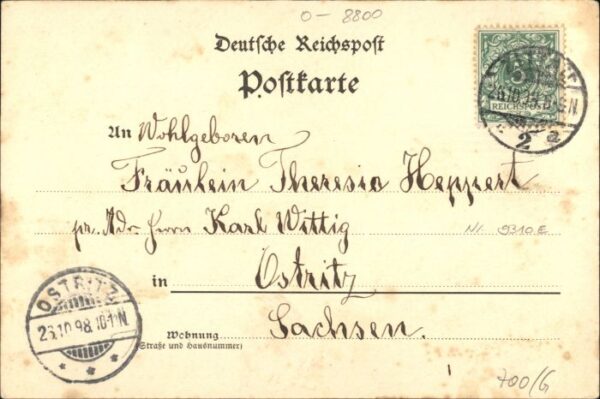 0-8800
Deutsche Reichspost
Postkarte
5
REICHSPOST
2 a
An Wohlgeboren
Fräulein Theresia Heppert
pr. Adr. Herrn Karl Wittig
in Ostritz
Sachsen.
Wohnung
(Straße und Hausnummer)
OSTRITZ
26.10.98.10-11N
700/G